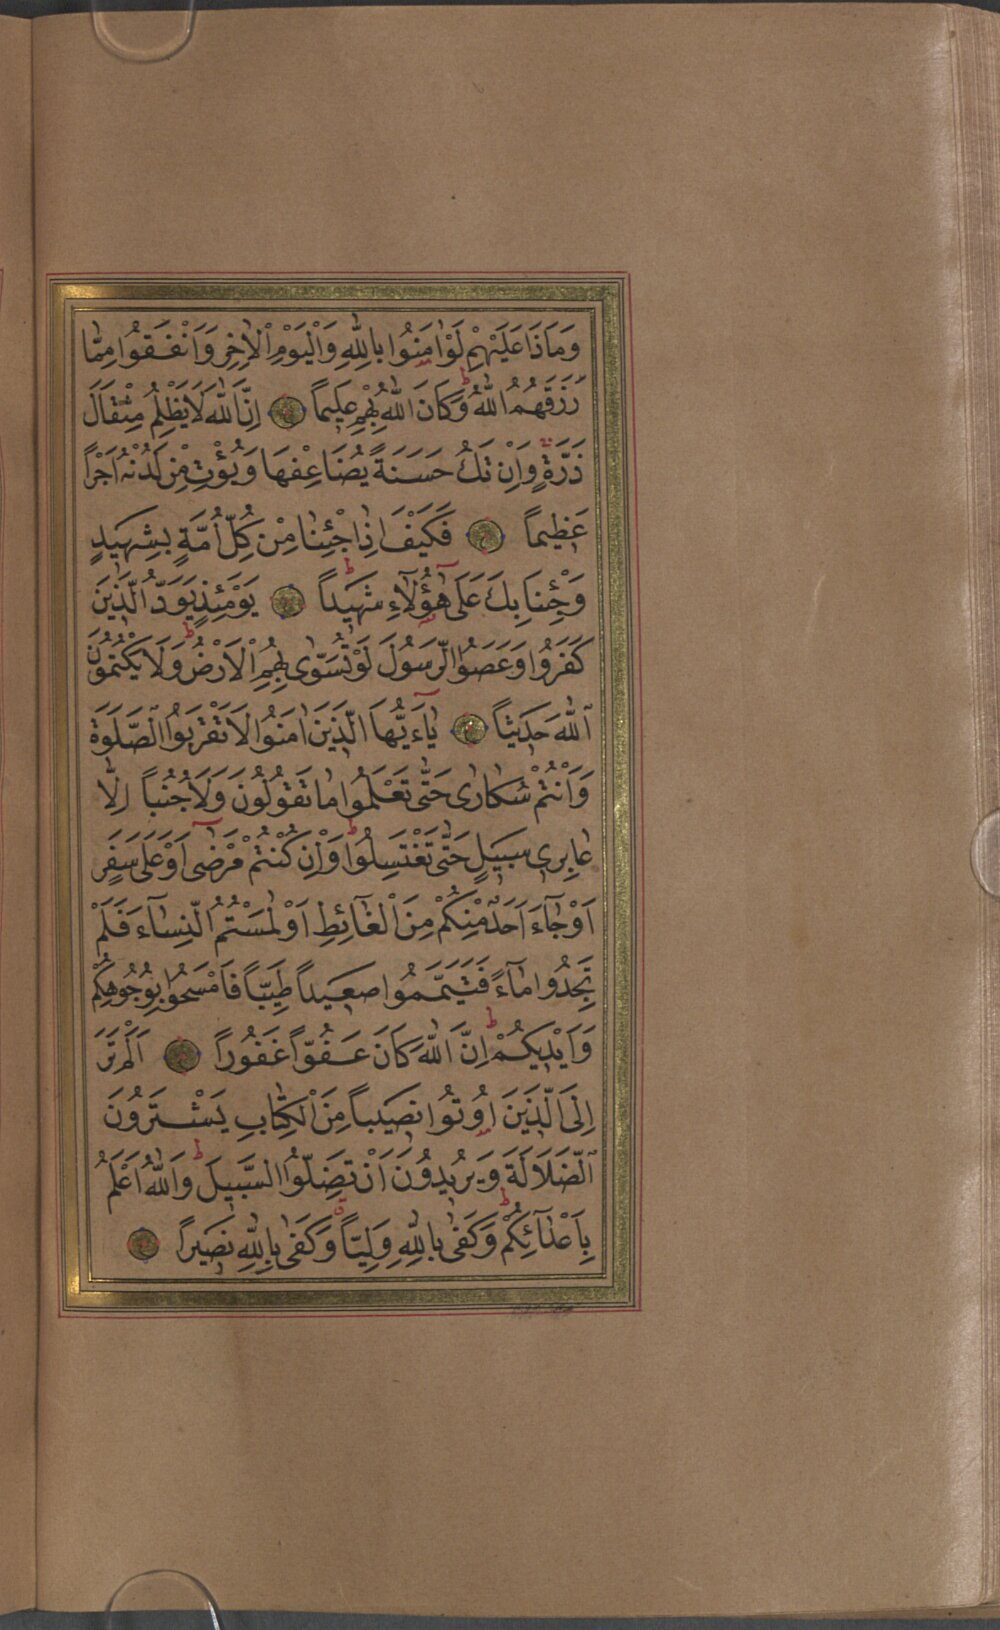 وَمَاذَا عَلَيْهِمْ لَوْ اٰمَنُوا بِاللّٰهِ وَالْيَوْمِ الْاٰخِرِ وَاَنْفَقُوا مِمَّا
رَزَقَهُمُ اللّٰهُ وَكَانَ اللّٰهُ بِهِمْ عَلِيمًا ۝ اِنَّ اللّٰهَ لَا يَظْلِمُ مِثْقَالَ
ذَرَّةٍ وَاِنْ تَكُ حَسَنَةً يُضَاعِفْهَا وَيُؤْتِ مِنْ لَدُنْهُ اَجْرًا
عَظِيمًا ۝ فَكَيْفَ اِذَا جِئْنَا مِنْ كُلِّ اُمَّةٍ بِشَهِيدٍ
وَجِئْنَا بِكَ عَلٰى هٰٓؤُلَٓاءِ شَهِيدًا ۝ يَوْمَئِذٍ يَوَدُّ الَّذِينَ
كَفَرُوا وَعَصَوُا الرَّسُولَ لَوْ تُسَوّٰى بِهِمُ الْاَرْضُ وَلَا يَكْتُمُونَ
اللّٰهَ حَدِيثًا ۝ يَٓا ءَيُّهَا الَّذِينَ اٰمَنُوا لَا تَقْرَبُوا الصَّلٰوةَ
وَاَنْتُمْ سُكَارٰى حَتّٰى تَعْلَمُوا مَا تَقُولُونَ وَلَا جُنُبًا اِلَّا
عَابِرِي سَبِيلٍ حَتّٰى تَغْتَسِلُوا وَاِنْ كُنْتُمْ مَرْضٰٓى اَوْ عَلٰى سَفَرٍ
اَوْ جَٓاءَ اَحَدٌ مِنْكُمْ مِنَ الْغَٓائِطِ اَوْ لٰمَسْتُمُ النِّسَٓاءَ فَلَمْ
تَجِدُوا مَٓاءً فَتَيَمَّمُوا صَعِيدًا طَيِّبًا فَامْسَحُوا بِوُجُوهِكُمْ
وَاَيْدِيكُمْ اِنَّ اللّٰهَ كَانَ عَفُوًّا غَفُورًا ۝ اَلَمْ تَرَ
اِلَى الَّذِينَ اُوتُوا نَصِيبًا مِنَ الْكِتَابِ يَشْتَرُونَ
الضَّلَالَةَ وَيُرِيدُونَ اَنْ تَضِلُّوا السَّبِيلَ وَاللّٰهُ اَعْلَمُ
بِاَعْدَٓائِكُمْ وَكَفٰى بِاللّٰهِ وَلِيًّا وَكَفٰى بِاللّٰهِ نَصِيرًا ۝